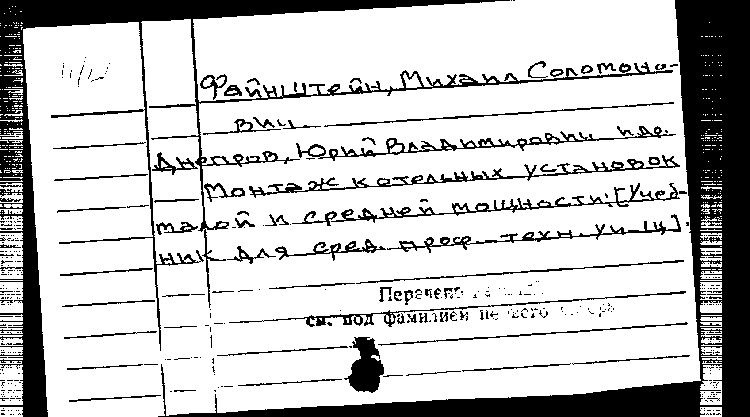 Файнштейн, Михаил Соломоно-
вич.
Днепров, Юрий Владимирович и др.
Монтаж котельных установок
малой и средней мощности: [Учеб-
ник для сред. проф.-техн. уч-щ].
Перечень
см. под фамилией первого автора